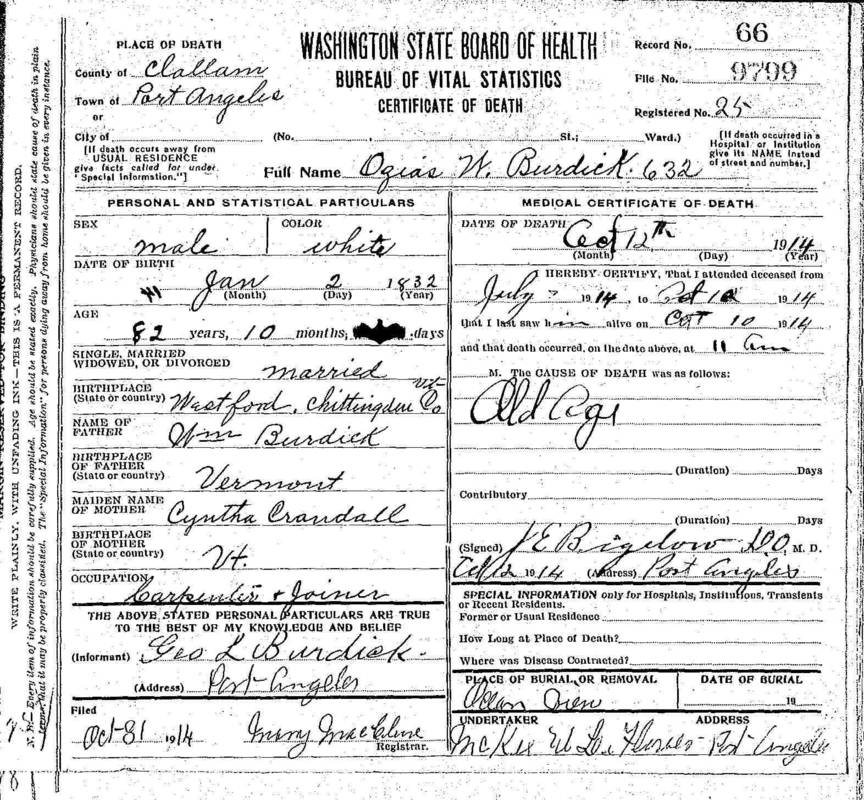 PLACE OF DEATH
County of Clallam
Town of Port Angeles
or
City of
(No. , St.; Ward.)
WASHINGTON STATE BOARD OF HEALTH
BUREAU OF VITAL STATISTICS
CERTIFICATE OF DEATH
Record No. 66
File No. 9799
Registered No. 25
[If death occurs away from
USUAL RESIDENCE
give facts called for under
"Special Information."]
[If death occurred in a
Hospital or Institution
give its NAME instead
of street and number.]
Full Name Ozias W. Burdick. 632
PERSONAL AND STATISTICAL PARTICULARS
SEX male
COLOR white
DATE OF BIRTH
Jan 2 1832
(Month) (Day) (Year)
AGE
82 years, 10 months, days
SINGLE, MARRIED
WIDOWED, OR DIVORCED married
BIRTHPLACE
(State or country) Westford, Chittingden Co Vt
NAME OF
FATHER Wm Burdick
BIRTHPLACE
OF FATHER
(State or country) Vermont
MAIDEN NAME
OF MOTHER Cyntha Crandall
BIRTHPLACE
OF MOTHER
(State or country) Vt.
OCCUPATION
Carpenter & Joiner
THE ABOVE STATED PERSONAL PARTICULARS ARE TRUE
TO THE BEST OF MY KNOWLEDGE AND BELIEF
(Informant) Geo L Burdick.
(Address) Port Angeles
Filed
Oct 31 1914 Mary MacClure
Registrar.
MEDICAL CERTIFICATE OF DEATH
DATE OF DEATH Oct 12th 1914
(Month) (Day) (Year)
I HEREBY CERTIFY, That I attended deceased from
July 1914, to Oct 10 1914
that I last saw him alive on Oct 10 1914
and that death occurred, on the date above, at 11 am
M. The CAUSE OF DEATH was as follows:
Old Age
(Duration) Days
Contributory
(Duration) Days
(Signed) J E Bigelow DO, M. D.
Oct 12 1914 (Address) Port Angeles
SPECIAL INFORMATION only for Hospitals, Institutions, Transients
or Recent Residents.
Former or Usual Residence
How Long at Place of Death?
Where was Disease Contracted?
PLACE OF BURIAL OR REMOVAL
Ocean View
DATE OF BURIAL
19
UNDERTAKER ADDRESS
McKee Port Angeles
MARGIN RESERVED FOR BINDING
WRITE PLAINLY, WITH UNFADING INK—THIS IS A PERMANENT RECORD.
N. B.—Every item of information should be carefully supplied. Age should be stated exactly. Physicians should state cause of death in plain
terms, that it may be properly classified. The "Special Information" for persons dying away from home should be given in every instance.